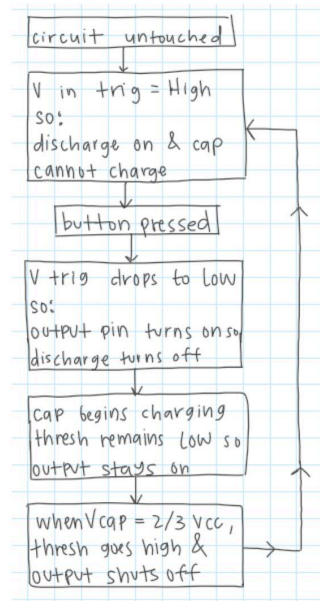 circuit untouched
V in trig = High
so:
discharge on & cap
cannot charge
button pressed
V trig drops to low
so:
output pin turns on so
discharge turns off
cap begins charging
thresh remains low so
output stays on
when Vcap = 2/3 Vcc,
thresh goes high &
output shuts off